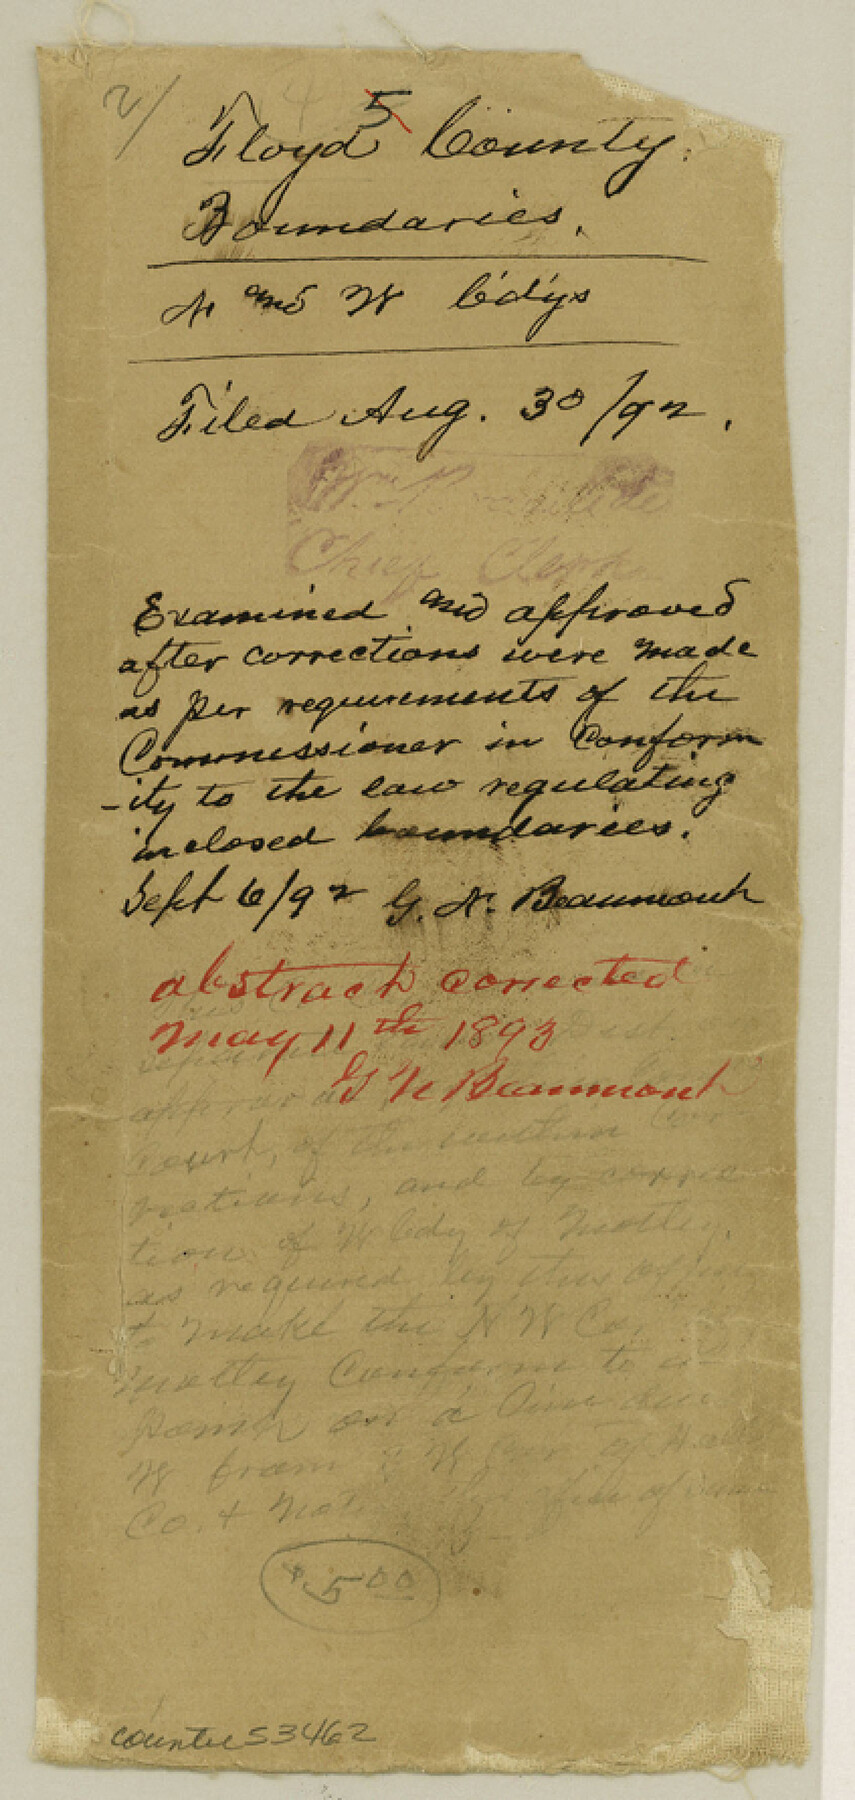 2/
5
Floyd County.
Boundaries.
N and W Bdys
Filed Aug. 30/92.
Chief Clerk
Examined and approved
after corrections were made
as per requirements of the
Commissioner in conform
-ity to the law regulating
inclosed boundaries.
Sept 6/92 G. N. Beaumont
abstract corrected
May 11th 1893
G N Beaumont
Court, of the
and by correc
tion of W bdy of Motley,
as required by this office
to make the N W Co.
Motley Conform to a
point on a line due
W from N W Cor. of Hall
Co. &
$5.00
counter 53462